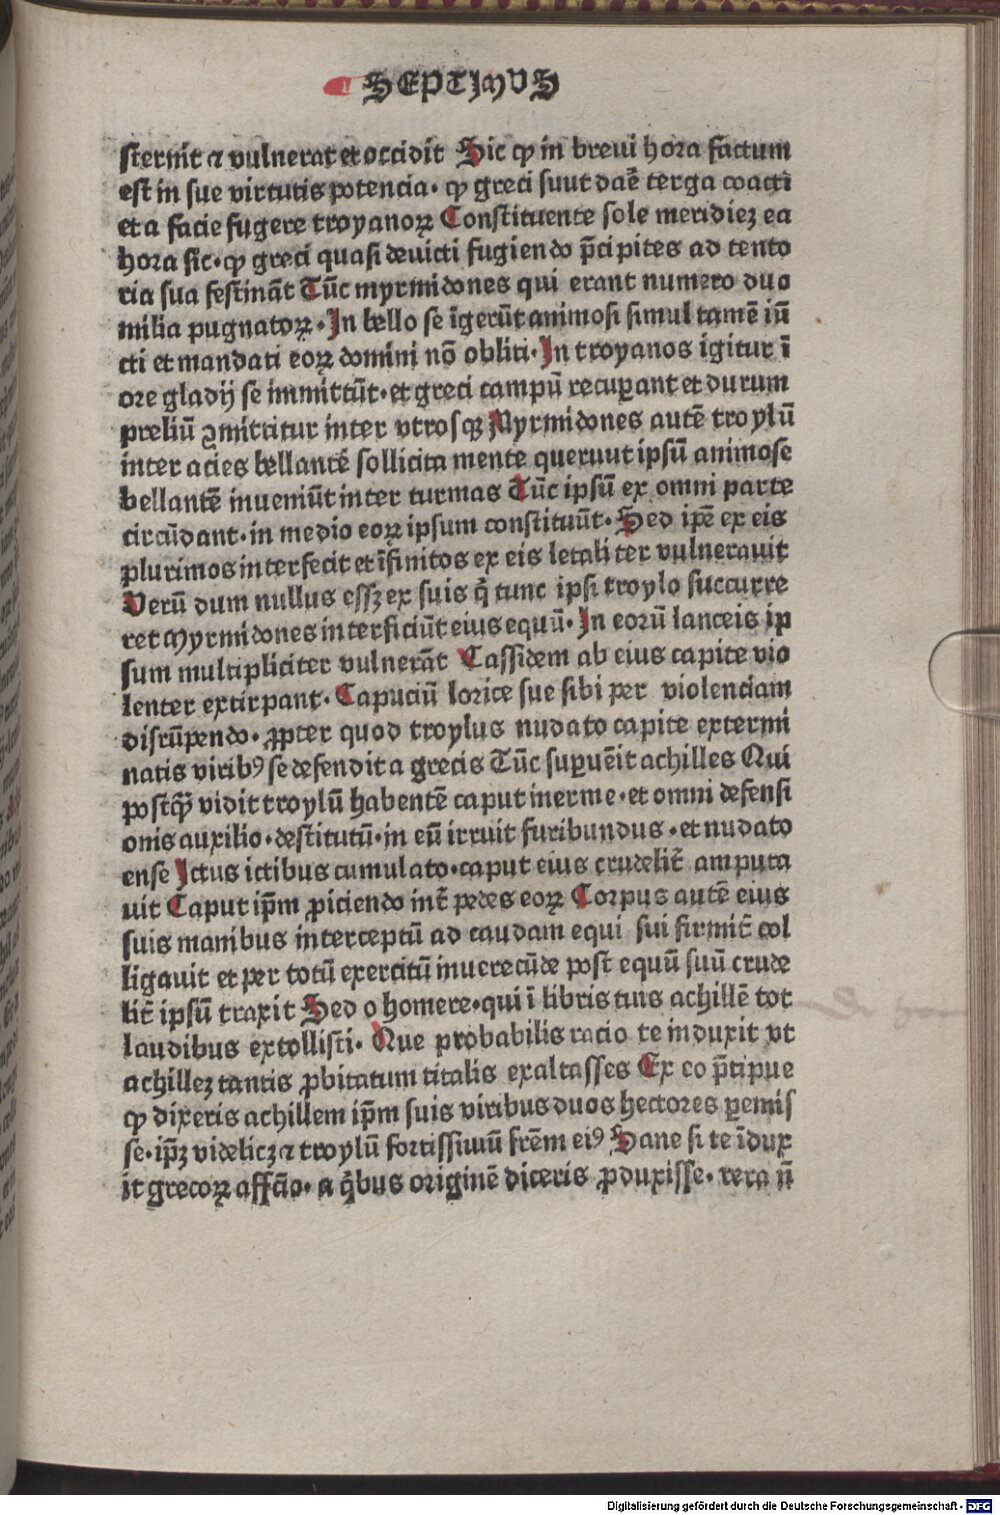 SEPTIMVS
sternit ⁊ vulnerat et occidit Sic ꝙ in breui hora factum
est in sue virtutis potencia· ꝙ greci sunt daē terga coacti
et a facie fugere troyanoꝝ Constituente sole meridiez ea
hora sic·ꝙ greci quasi deuicti fugiendo p̄cipites ad tento
ria sua festināt Tūc myrmidones qui erant numero duo
milia pugnatoꝝ· In bello se īgerūt animosi simul tamē iū
cti et mandati eoꝝ domini nō obliti· In troyanos igitur ī
ore gladij se immittūt· et greci campū recuꝑant et durum
preliū ꝯmittitur inter vtrosqꝫ Myrmidones autē troylū
inter acies bellantē sollicita mente querunt ipsū animose
bellantē inueniūt inter turmas Tūc ipsū ex omni parte
circūdant· in medio eoꝝ ipsum constituūt· Sed ip̄e ex eis
plurimos interfecit et īfinitos ex eis letaliter vulnerauit
Verū dum nullus essꝫ ex suis q̄ tunc ipsi troylo succurre
ret myrmidones interficiūt eius equū· In eorū lanceis ip
sum multipliciter vulnerāt Cassidem ab eius capite vio
lenter extirpant· Capuciū lorice sue sibi per violenciam
disrūpendo· ꝓpter quod troylus nudato capite extermi
natis viribꝰ se defendit a grecis Tūc suꝑuēit achilles Qui
postꝙ̄ vidit troylū habentē caput inerme· et omni defensi
onis auxilio· destitutū· in eū irruit furibundus· et nudato
ense Ictus ictibus cumulato· caput eius crudelit̄ amputa
uit Caput ip̄m ꝓiciendo int̄ pedes eoꝝ Corpus autē eius
suis manibus interceptū ad caudam equi sui firmit̄ col
ligauit et per totū exercitū inuerecūde post equū suū crude
lit̄ ipsū traxit Sed o homere· qui ī libris tuis achillē tot
laudibus extollisti· Que probabilis racio te induxit vt
achillez tantis ꝓbitatum titulis exaltasses Ex eo p̄cipue
ꝙ dixeris achillem ip̄m suis viribus duos hectores ꝑemis
se· ip̄ꝫ videlicꝫ ⁊ troylū fortissimū frēm eiꝰ Sane si te īdux
it grecoꝝ affc̄io· a q̄bus originē diceris ꝓduxisse· vera n̄
Digitalisierung gefördert durch die Deutsche Forschungsgemeinschaft - DFG